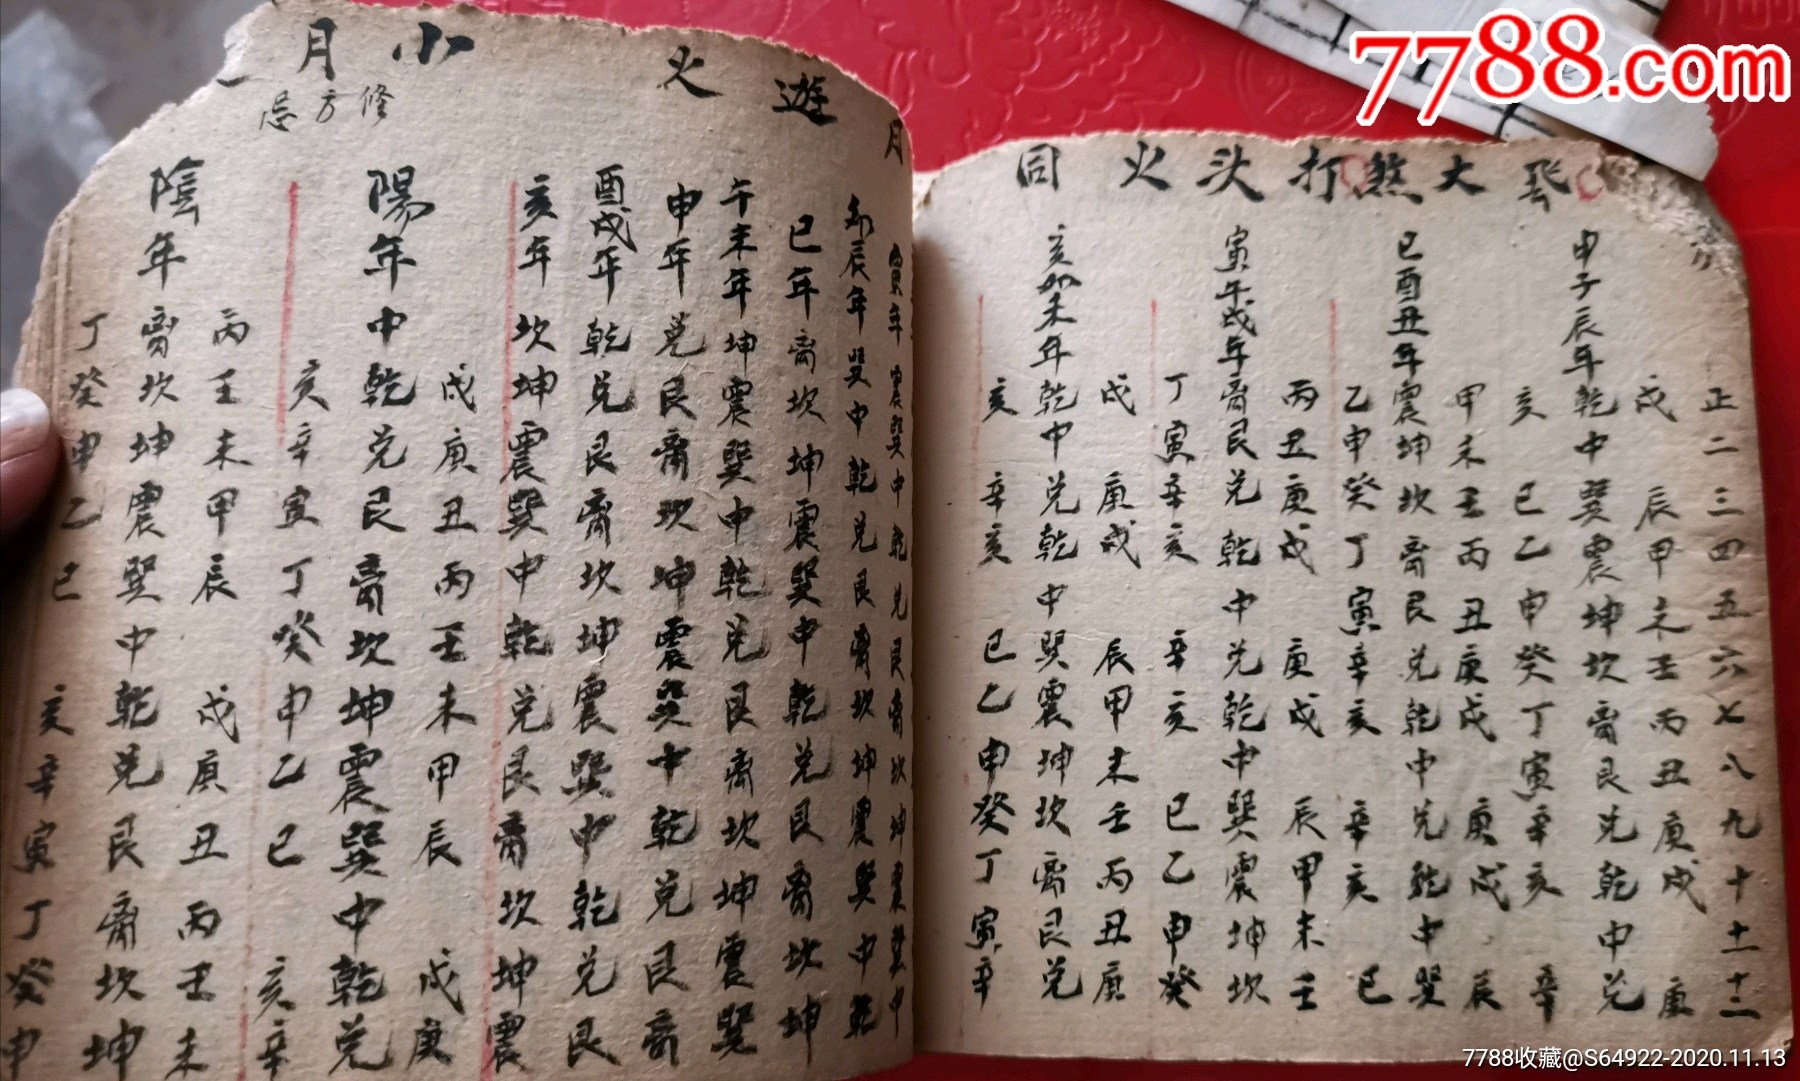 飛大煞打头火同
正二三四五六七八九十十一十二
戌 辰甲未壬丙丑庚戌 庚
申子辰年乾中巽震坤坎离艮兑乾中兑
亥 巳乙申癸丁寅辛亥 辛
甲未壬丙丑庚戌 庚戌 辰
巳酉丑年震坤坎离艮兑乾中兑乾中巽
乙申癸丁寅辛亥 辛亥 巳
丙丑庚戌 庚戌 辰甲未壬
寅午戌年离艮兑乾中兑乾中巽震坤坎
丁寅辛亥 辛亥 巳乙申癸
戌 庚戌 辰甲未壬丙丑庚
亥卯未年乾中兑乾中巽震坤坎离艮兑
亥 辛亥 巳乙申癸丁寅辛
月遊火
寅年震巽中乾兑艮离坎坤震巽中
卯辰年巽中乾兑艮离坎坤震巽中乾
巳年离坎坤震巽中乾兑艮离坎坤
午未年坤震巽中乾兑艮离坎坤震巽
申年兑艮离坎坤震巽中乾兑艮离
酉戌年乾兑艮离坎坤震巽中乾兑艮
亥年坎坤震巽中乾兑艮离坎坤震
小月
修方忌
戌庚丑丙壬未甲辰 戌庚
陽年中乾兑艮离坎坤震巽中乾兑
亥辛寅丁癸申乙巳 亥辛
丙壬未甲辰 戌庚丑丙壬未
陰年离坎坤震巽中乾兑艮离坎坤
丁癸申乙巳 亥辛寅丁癸申
7788.com
7788收藏@S64922-2020.11.13